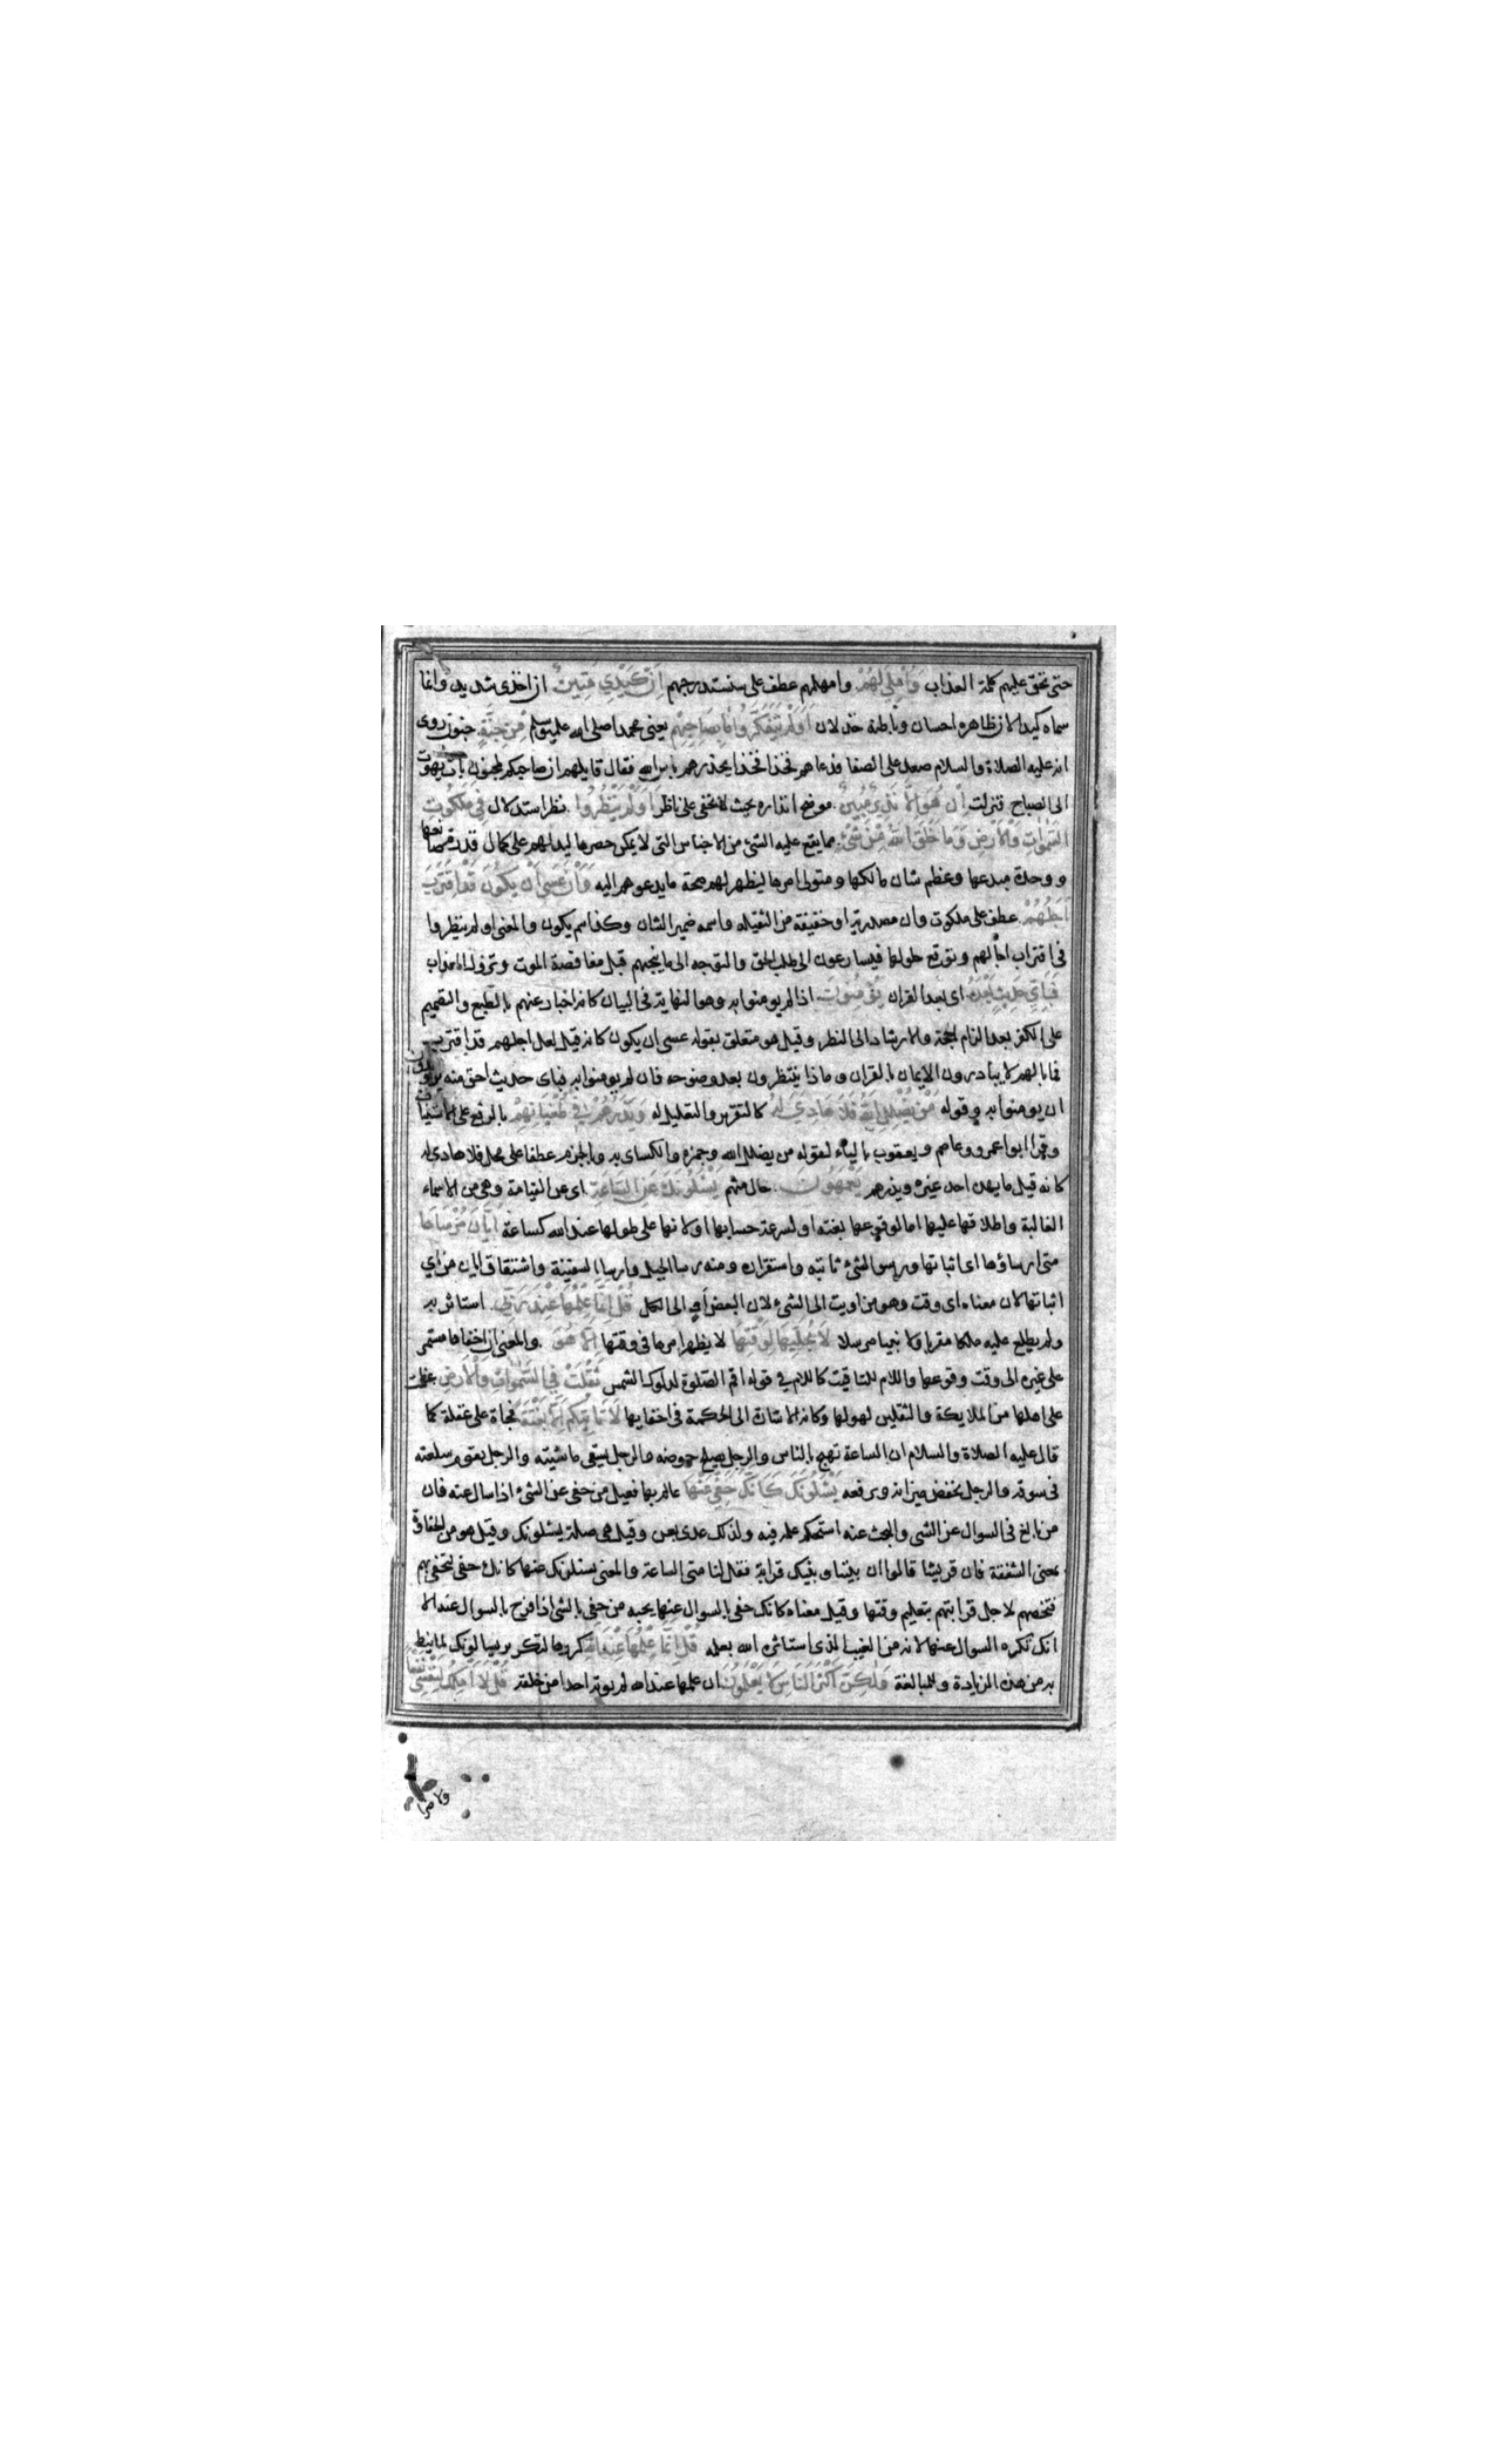 حتى تحق عليهم كلمة العذاب وَأُمْلِي لَهُمْ وامهلهم عطف على سنستدرجهم اِنَّ كَيْدِي مَتِينٌ ان اخذى شديد وانما
سماه كيدا لان ظاهره احسان وباطنه خذلان اَوَلَمْ يَتَفَكَّرُوا مَا بِصَاحِبِهِمْ يعنى محمدا صلى الله عليه وسلم مِنْ جِنَّةٍ جنون روى
انه عليه الصلاة والسلام صعد على الصفا فدعاهم فخذا فخذا يحذرهم باس الله فقال قايلهم ان صاحبكم لمجنون بات يهوت
الى الصباح فنزلت اِنْ هُوَ اِلَّا نَذِيرٌ مُبِينٌ موضح انذاره بحيث لا يخفى على ناظر اَوَلَمْ يَنْظُرُوا نظر استدلال فِي مَلَكُوتِ
السَّمٰوَاتِ وَالْاَرْضِ وَمَا خَلَقَ اللّٰهُ مِنْ شَيْءٍ مما يقع عليه الشئ من الاجناس التى لا يمكن حصرها ليدلهم على كمال قدرة صانعها
ووحدة مبدعها وعظم شان مالكها ومتولى امرها ليظهر لهم صحة ما يدعوهم اليه وَاَنْ عَسَى اَنْ يَكُونَ قَدِ اقْتَرَبَ
اَجَلُهُمْ عطف على ملكوت وان مصدرية او مخففة من الثقيلة واسمه ضمير الشان وكذا اسم يكون والمعنى اولم ينظروا
فى اقتراب اجالهم وتوقع حلولها فيسارعون الى طلب الحق والتوجه الى ما ينجيهم قبل مغافصة الموت ونزول العذاب
فَبِأَيِّ حَدِيثٍ بَعْدَهُ اى بعد القران يُؤْمِنُونَ اذا لم يومنوا به وهو النهاية فى البيان كانه اخبار عنهم بالطبع والتصميم
على الكفر بعد الزام الحجة والارشاد الى النظر وقيل هو متعلق بقوله عسى ان يكون كانه قيل لعل اجلهم قد اقترب
فما بالهم لا يبادرون الايمان بالقران وماذا ينتظرون بعد وضوحه فان لم يومنوا به فباى حديث احق منه يريدون
ان يومنوا به وقوله مَنْ يُضْلِلِ اللّٰهُ فَلَا هَادِيَ لَهُ كالتقرير والتعليل له وَيَذَرُهُمْ فِي طُغْيَانِهِمْ بالرفع على الاستيناف
وقرا ابو اعمرو وعاصم ويعقوب بالياء لقوله من يضلل الله وحمزه والكساى به وبالجزم عطفا على محل فلا هادى له
كانه قيل ما يهده احد غيره ويذرهم يَعْمَهُونَ حال منهم يَسْئَلُونَكَ عَنِ السَّاعَةِ اى عن القيامة وهى من الاسماء
الغالبة واطلاقها عليها اما لوقوعها بغتة او لسرعة حسابها او لانها على طولها عند الله كساعة اَيَّانَ مُرْسَاهَا
متى ارساؤها اى اثباتها ورسو الشئ ثباته واستقراره ومنه رسا الجبل وارسا السفينة واشتقاق ايان من اي
اثباتها لان معناه اى وقت وهو من اويت الى الشئ لان البعض آو الى الكل قُلْ اِنَّمَا عِلْمُهَا عِنْدَ رَبِّي استاثر به
ولم يطلع عليه ملكا مقربا ولا نبيا مرسلا لَا يُجَلِّيهَا لِوَقْتِهَا لا يظهر امرها فى وقتها اِلَّا هُوَ والمعنى ان اخفاها مستمر
على غيره الى وقت وقوعها واللام للتاقيت كاللام في قوله اقم الصلوة لدلوك الشمس ثَقُلَتْ فِي السَّمٰوَاتِ وَالْاَرْضِ عظمت
على اهلها من الملايكة والثقلين لهولها وكانه الاشارة الى الحكمة فى اخفايها لَا تَأْتِيكُمْ اِلَّا بَغْتَةً فجاة على غفلة كما
قال عليه الصلاة والسلام ان الساعة تهيج بالناس والرجل يصلح حوضه والرجل يسقى ماشيته والرجل يقوم سلعته
فى سوقه والرجل يخفض ميزانه ويرفعه يَسْئَلُونَكَ كَاَنَّكَ حَفِيٌّ عَنْهَا عالم بها فعيل من حفى عن الشئ اذا سال عنه فان
من بالغ فى السوال عن الشى والبحث عنه استحكم علمه فيه ولذلك عدى بعن وقيل هى صلة يسئلونك وقيل هو من الحفاوة
بمعنى الشفقة فان قريشا قالوا ان بيننا وبينك قرابة فقل لنا متى الساعة والمعنى يسئلونك عنها كانك حفى تتحفى بهم
فتخصهم لاجل قرابتهم بتعليم وقتها وقيل معناه كانك حفى بالسوال عنها يحبه من حفى بالشى اذا فرح بالسوال عند الا
انك تكره السوال عنها لانه من الغيب الذى استاثره الله بعلمه قُلْ اِنَّمَا عِلْمُهَا عِنْدَ اللّٰهِ كرره لتكرير يسالونك لما نيط
به من هذه الزيادة وللمبالغة وَلٰكِنَّ اَكْثَرَ النَّاسِ لَا يَعْلَمُونَ ان علمها عند الله لم يوته احدا من خلقه قُلْ لَا اَمْلِكُ لِنَفْسِي نَفْعًا
ولا ضرا